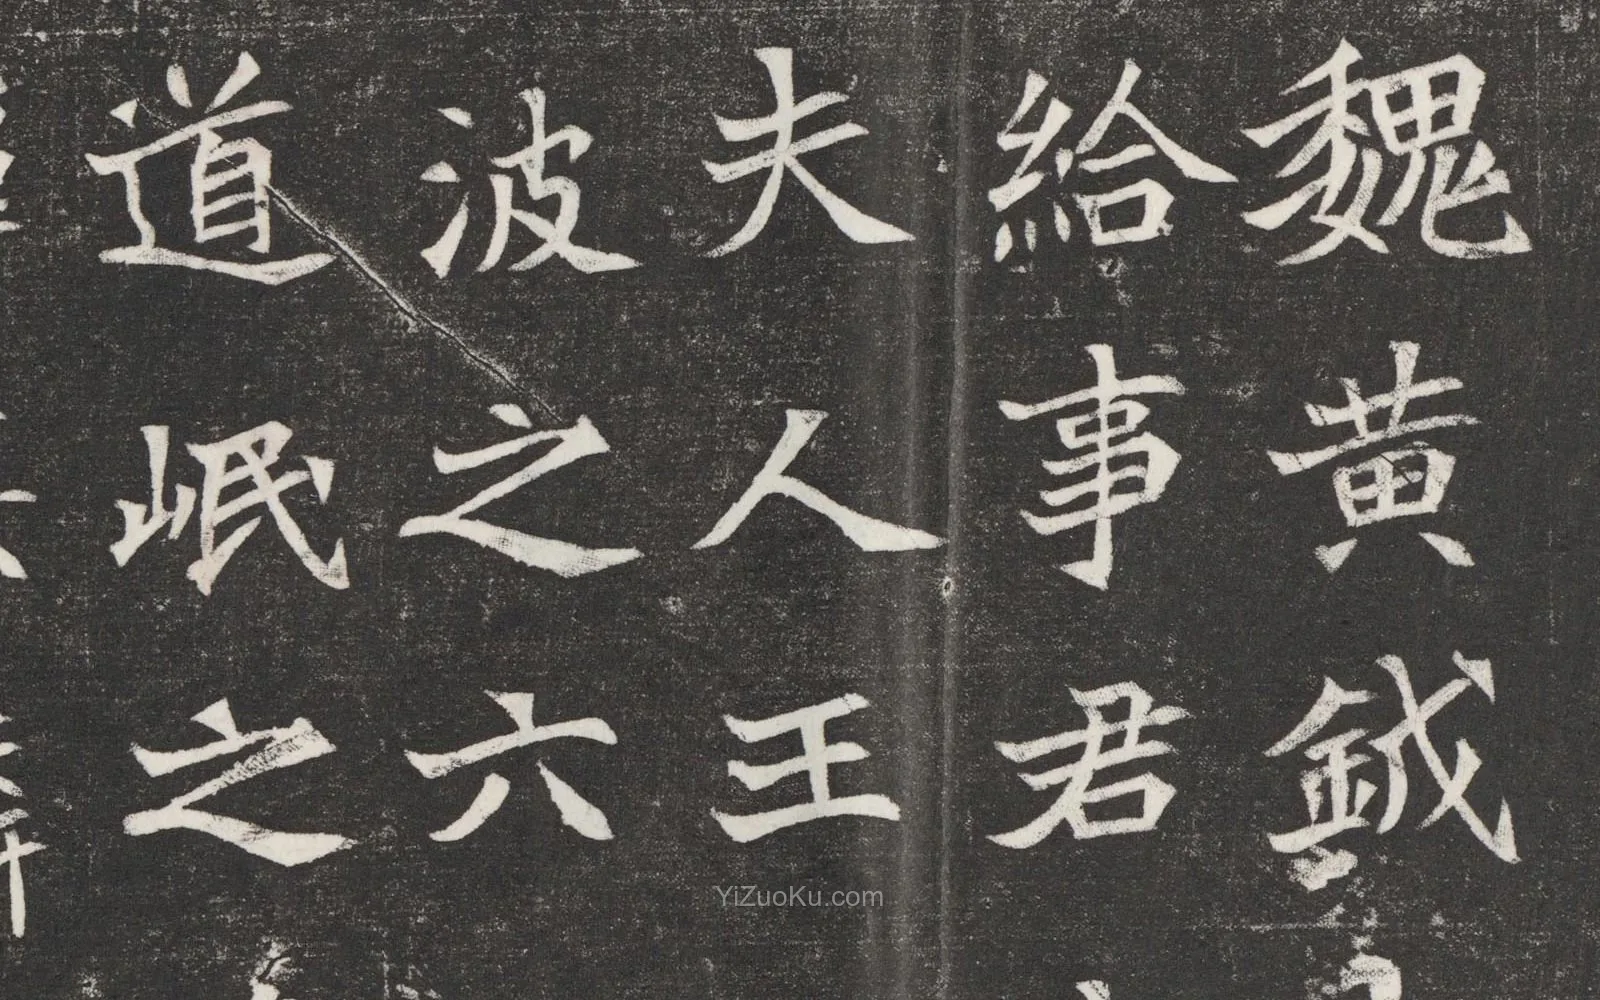 魏黄鉞
給事君
夫人王
波之六
道岷之
YiZuoKu.com